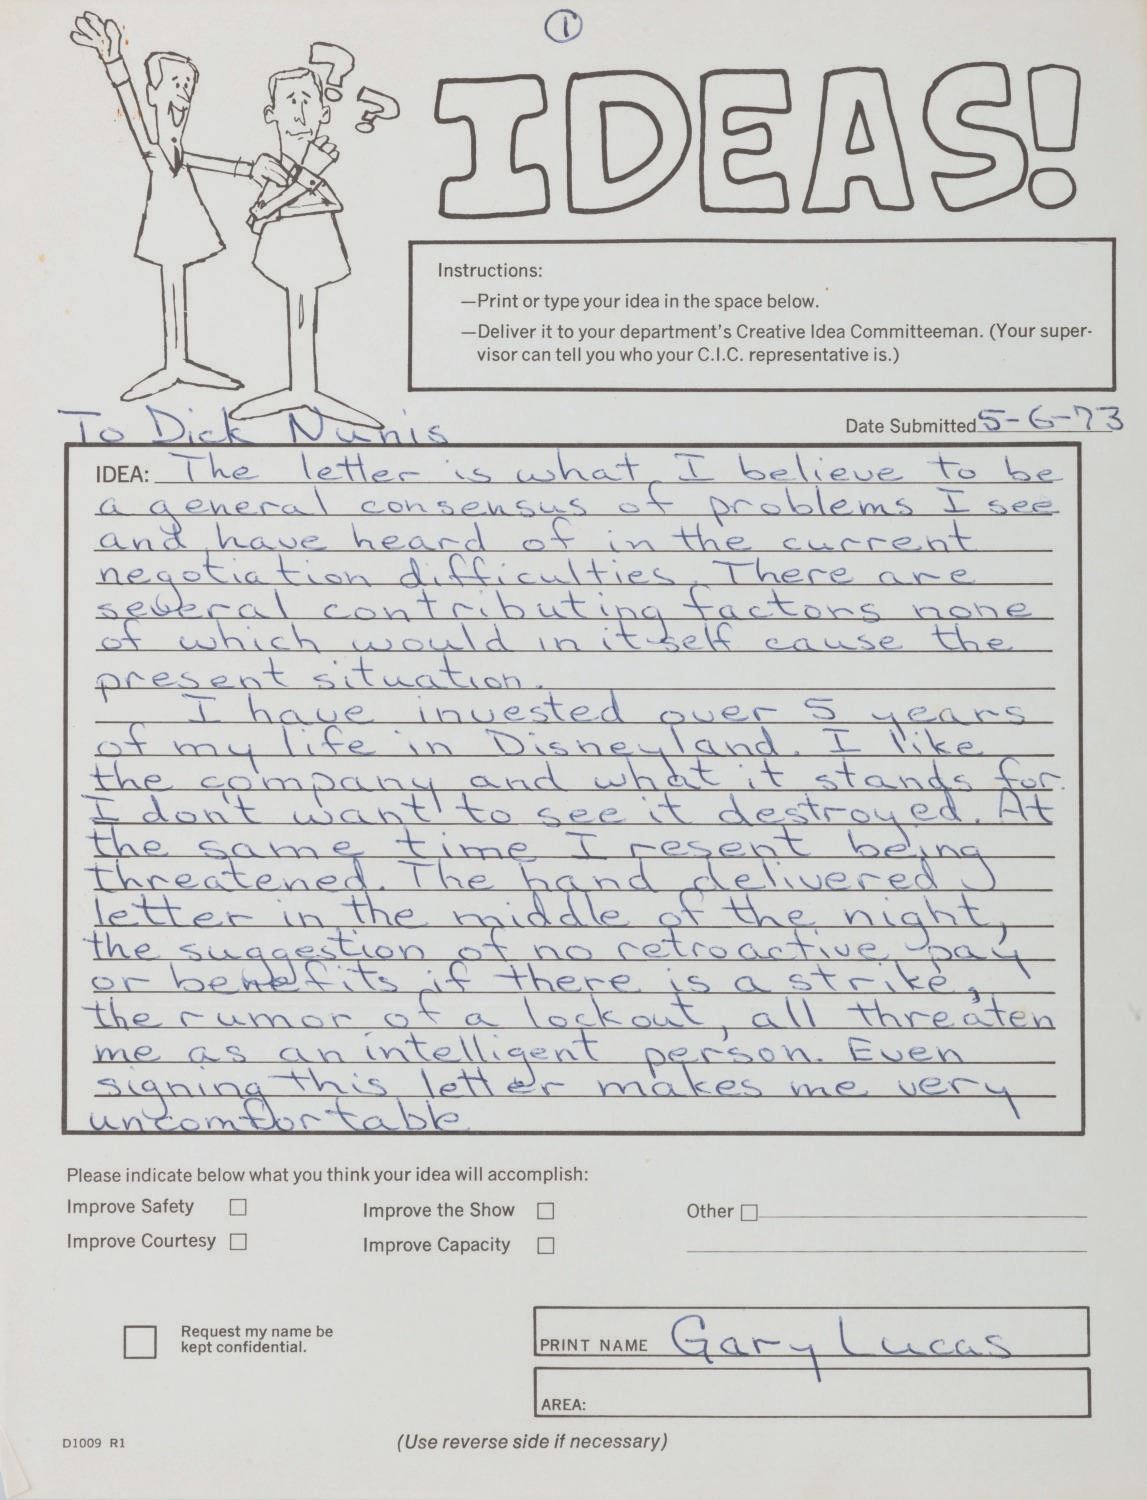 1
? ?
IDEAS!
Instructions:
—Print or type your idea in the space below.
—Deliver it to your department's Creative Idea Committeeman. (Your super-
visor can tell you who your C.I.C. representative is.)
To Dick Nunis
Date Submitted 5-6-73
IDEA: The letter is what I believe to be
a general consensus of problems I see
and have heard of in the current
negotiation difficulties. There are
several contributing factors none
of which would in itself cause the
present situation.
I have invested over 5 years
of my life in Disneyland. I like
the company and what it stands for.
I don't want to see it destroyed. At
the same time I resent being
threatened. The hand delivered
letter in the middle of the night,
the suggestion of no retroactive pay
or benefits if there is a strike,
the rumor of a lockout, all threaten
me as an intelligent person. Even
signing this letter makes me very
uncomfortable
Please indicate below what you think your idea will accomplish:
Improve Safety □ Improve the Show □ Other □
Improve Courtesy □ Improve Capacity □
Request my name be
kept confidential.
PRINT NAME Gary Lucas
AREA:
D1009 R1 (Use reverse side if necessary)